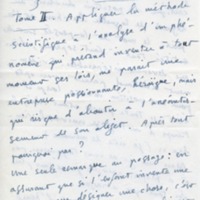 Tome II. Appliquer la méthode
scientifique à l'analyse d'un phé-
nomène qui prétend inventer à tout
moment ses lois, me paraît une
entreprise passionnante. Héroïque, mais
qui risque d'aboutir à l'
sement de son objet. Après tout
pourquoi pas ?
Une seule remarque au passage : en
assurant que si l'enfant invente une
désigner une chose, c'est